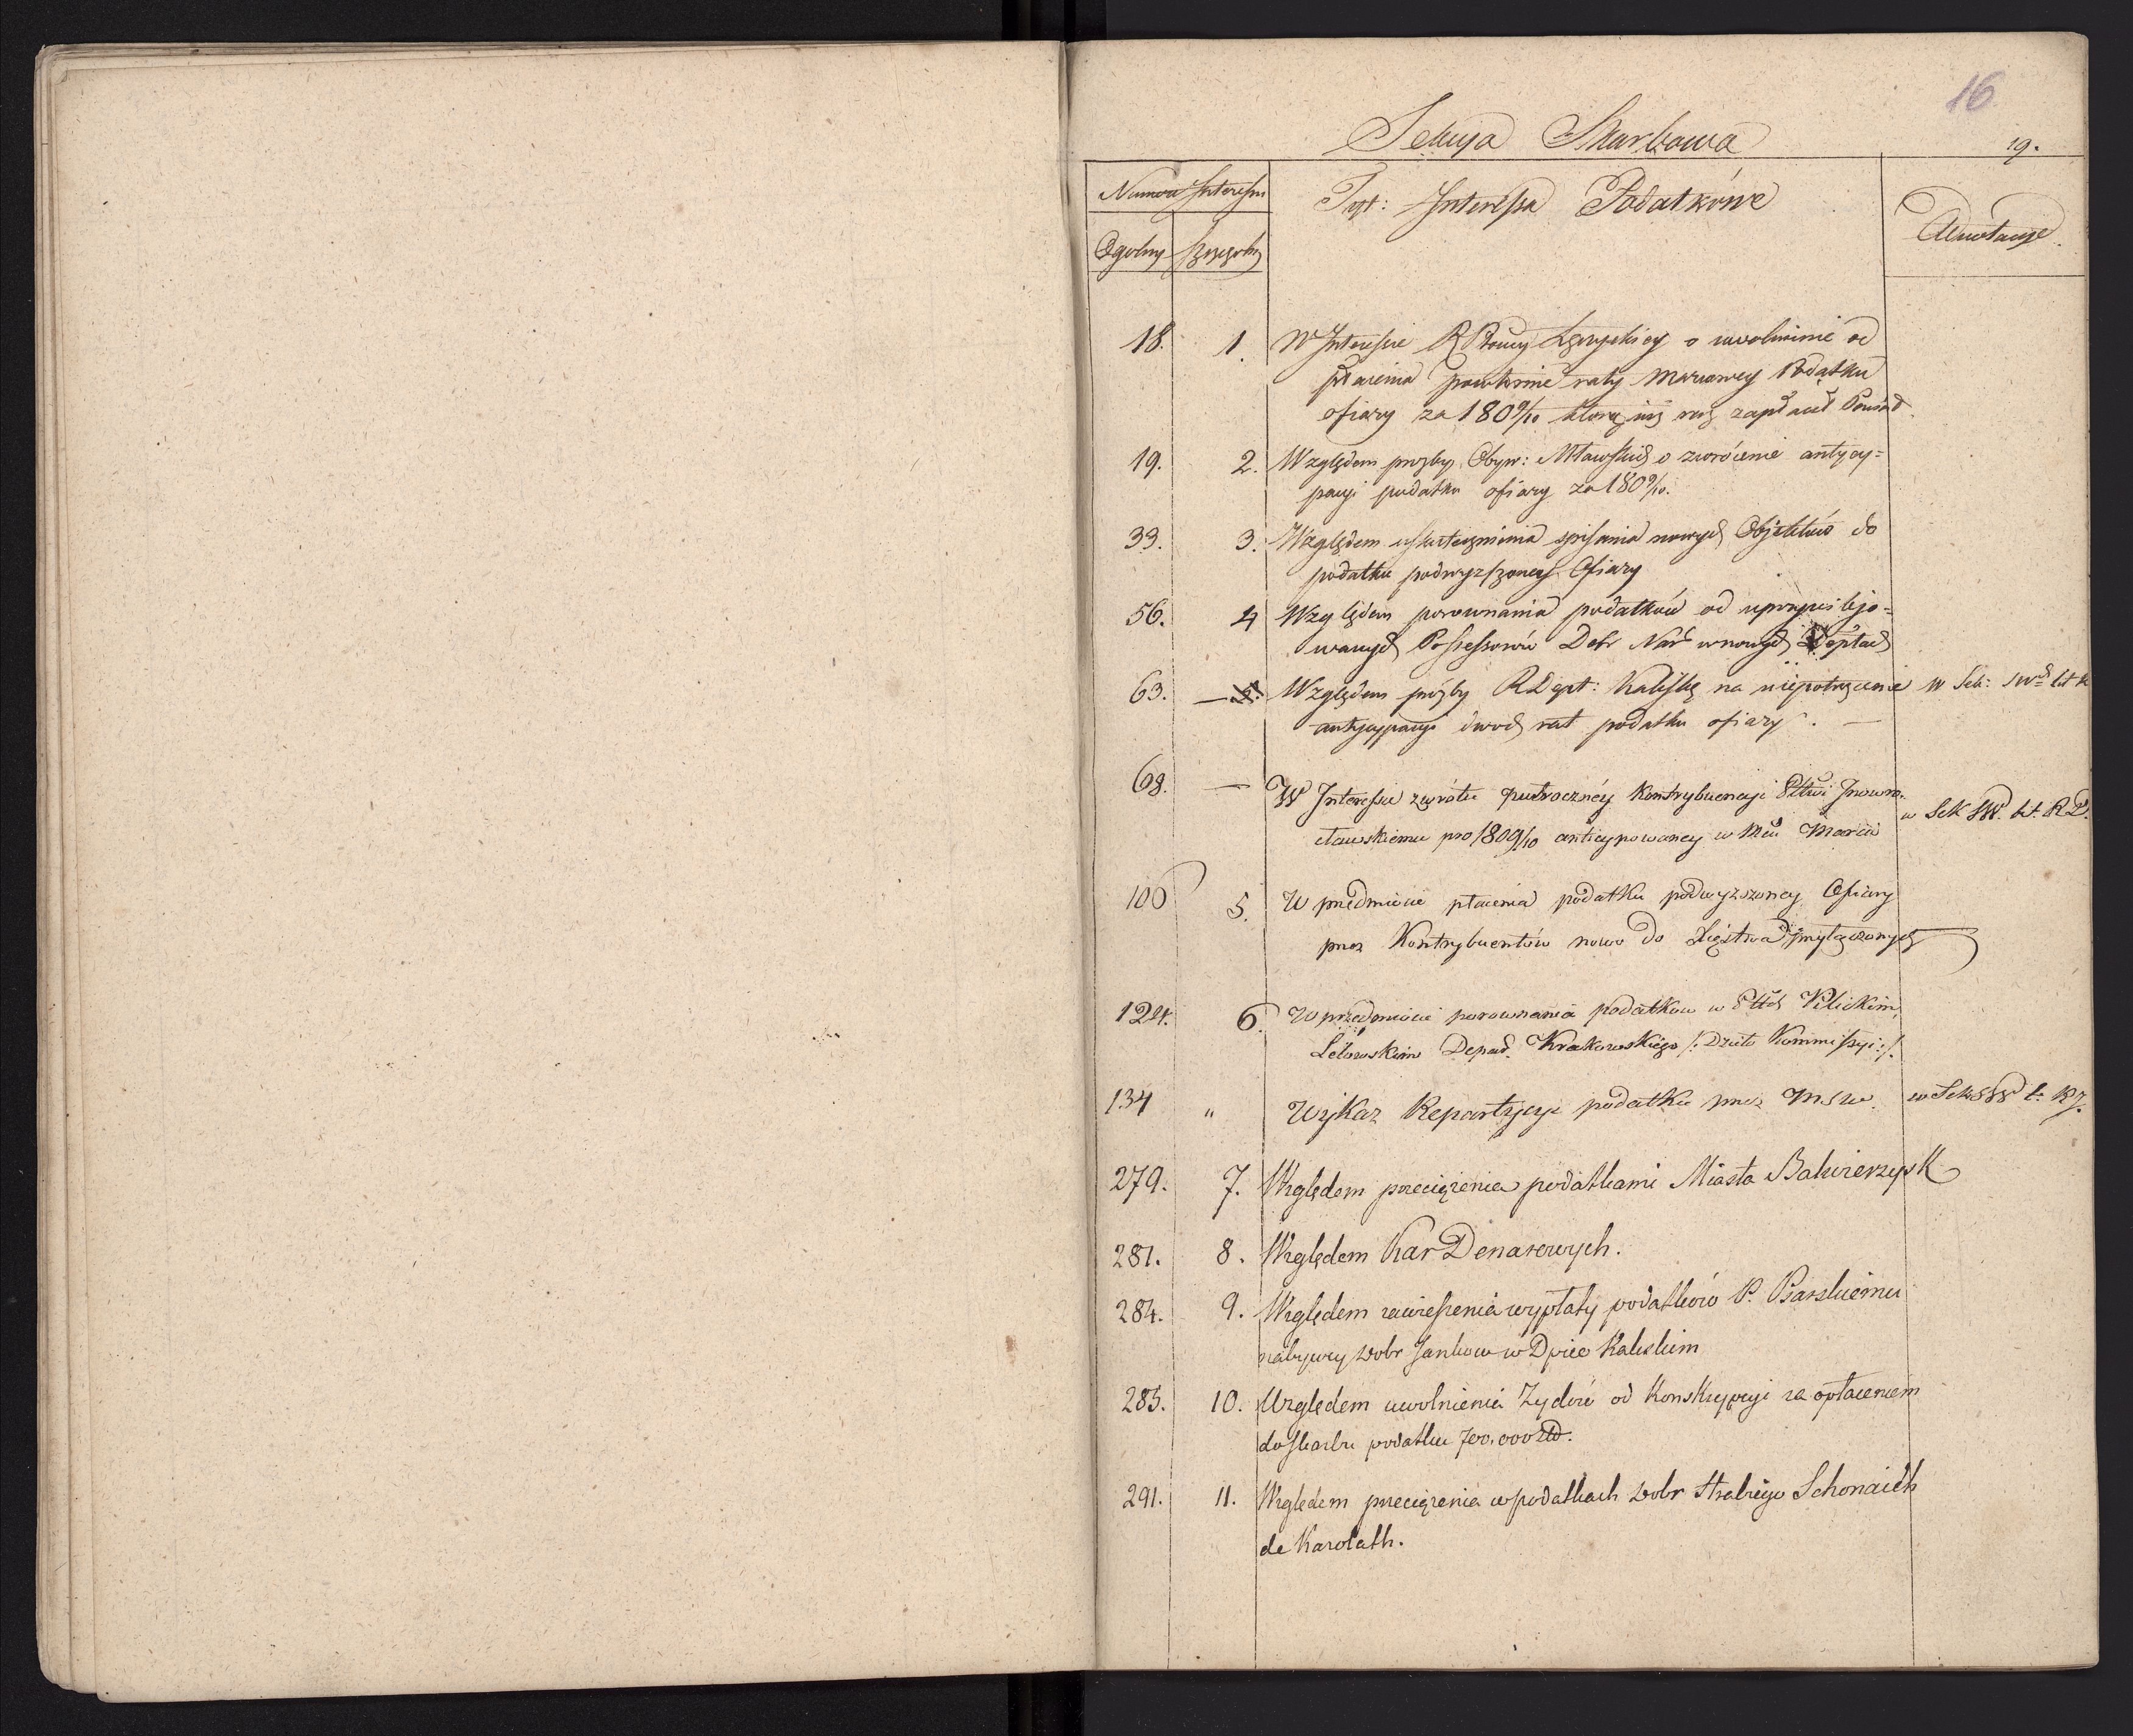 16
Sekcya Skarbowa
19.
Numera Interessu
Tyt: Interessa Podatkowe
Adnotacye.
Ogolny Szczegolny
18. 1. W Interesie R Powiatowey Łęczyckiey o uwolnienie od
płacenia powtornie raty Marcowey Podatku
ofiary za 1809/10 ktorą iuż raz zapłacił
19. 2. Względem prozby Obyw: Mławskich o zwrócenie antycy=
pacyi podatku ofiary za 1809/10.
33. 3. Względem uskutecznienia spisania nowych Objektów do
podatku podwyższoney Ofiary
56. 4 Względem porownania podatków od uprzywilejo=
wanych Possessorów Dobr Nar w nowych Deptach
63. — 5. Względem prózby R Dept: Kaliskę na niepotrącenie w Sek: SWd lit R
antycypacyi dwoch rat podatku ofiary. —
68. — W Interessie zwrotu pułroczney Kontrybucyi Pttwi Jnowro-
cławskiemu pro 1809/10 anticypowaney w Mcu Marcu w Sek SW. Lit. R 2.
100 5. W przedmiocie płacenia podatku podwyzszoney Ofiary
przez Kontrybuentów nowo do Xięstwa przyłączonych
124. 6. W przedmiocie porownania podatkow w Pttch Pilickim,
Lelowskim Depart. Krakowskiego /: Dzieło Kommissyi :/.
134 " Wykaz Repartycyi podatku przez MSW. w Sek SW l: R 7.
279. 7. Względem przeciążenia podatkami Miasta Bakierzysk
281. 8. Względem Kar Denarowych.
284. 9. Względem zawieszenia wypłaty podatków P. Psarskiemu
nabywcy Dobr Jankow w Dpcie Kaliskim
285. 10. Względem uwolnienia Zydów od Konskrypcyi za opłaceniem
do skarbu podatku 700,000 Złd.
291. 11. Względem przeciążenia w podatkach Dobr Hrabiego Schonaich
de Karolath.